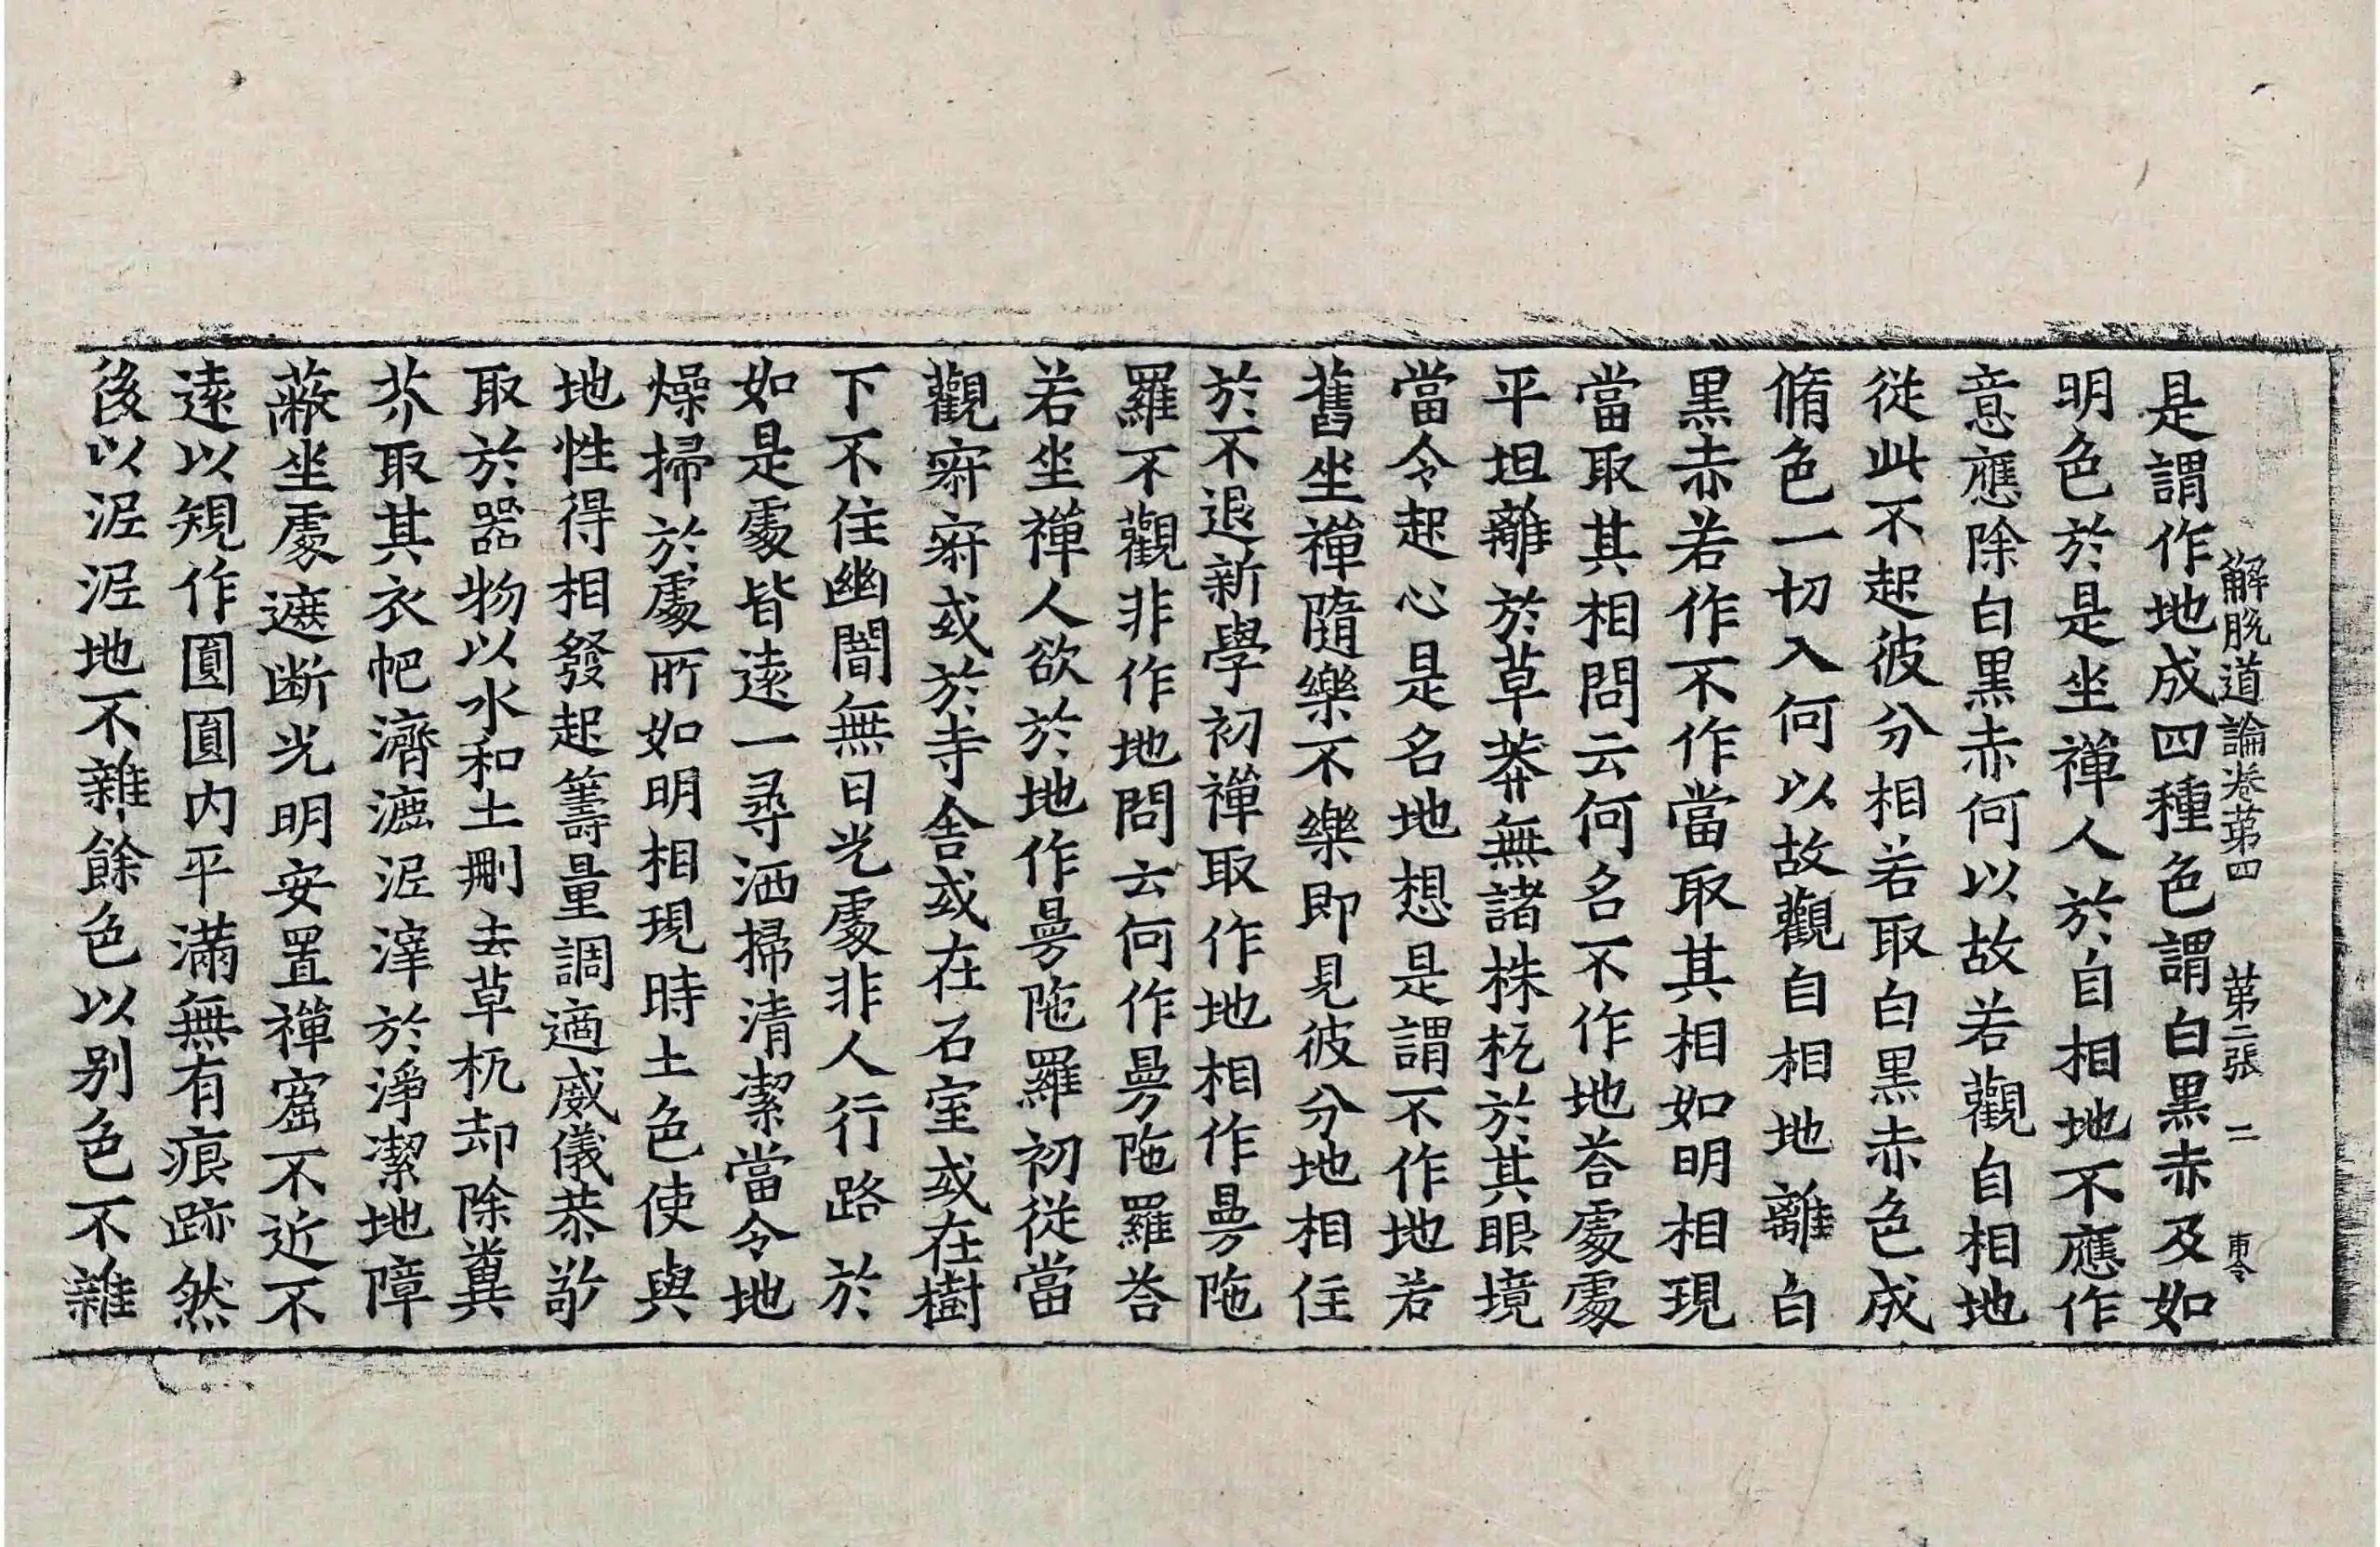 解脫道論卷苐四 苐二張 二 東令
是謂作地成四種色謂白黒赤及如
明色於是坐禪人於自相地不應作
意應除白黒赤何以故若觀自相地
從此不起彼分相若取白黒赤色成
脩色一切入何以故觀自相地離白
黒赤若作不作當取其相如明相現
當取其相問云何名不作地荅處處
平坦離於草莽無諸株杌於其眼境
當令起心是名地想是謂不作地若
舊坐禪隨樂不樂即見彼分地相住
於不退新學初禪取作地相作曼陁
羅不觀非作地問云何作曼陁羅荅
若坐禪人欲於地作曼陁羅初從當
觀寂寂或於寺舎或在石室或在樹
下不住幽闇無日光處非人行路於
如是處皆遠一尋洒掃清潔當令地
燥掃於處所如明相現時土色使與
地性得相發起籌量調適威儀恭敬
取於器物以水和土刪去草杌却除糞
芥取其衣帊濟漉泥滓於淨潔地障
蔽坐處遮断光明安置禪窟不近不
遠以規作圓圓内平滿無有痕跡然
後以泥泥地不雜餘色以别色不雜